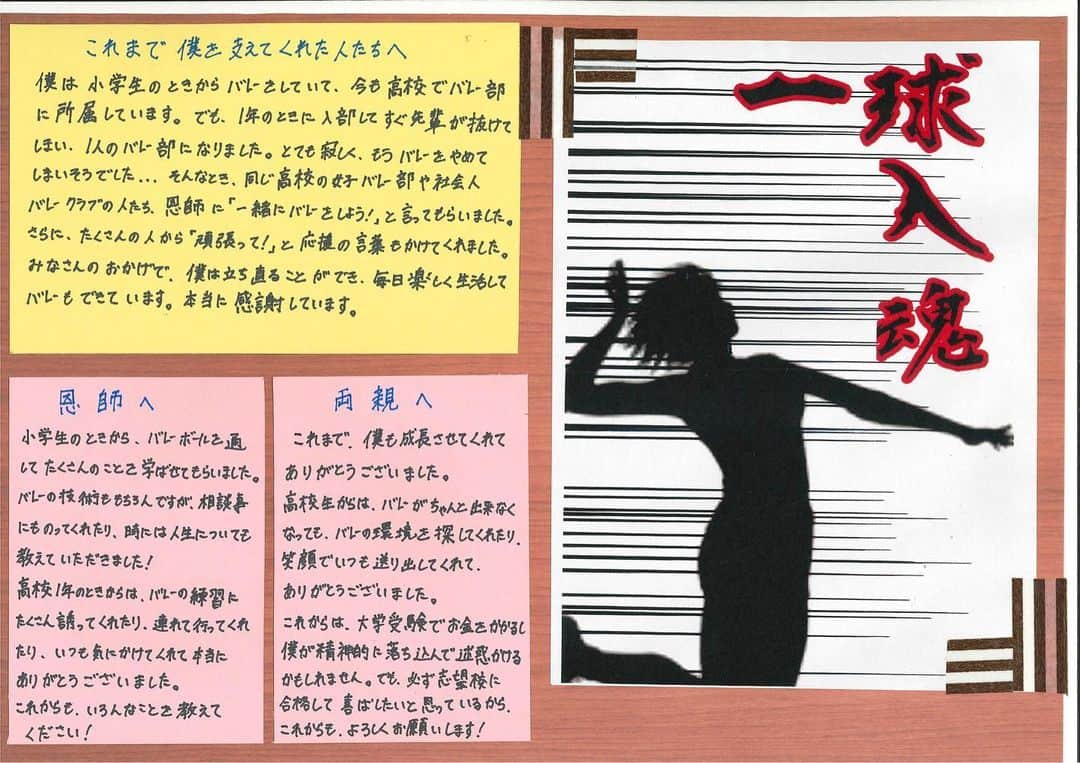 これまで僕を支えてくれた人たちへ
僕は小学生のときからバレーをしていて、今も高校でバレー部
に所属しています。でも、1年のときに入部してすぐ先輩が抜けて
しまい、1人のバレー部になりました。とても寂しく、もうバレーをやめて
しまいそうでした... そんなとき、同じ高校の女子バレー部や社会人
バレークラブの人たち、恩師に「一緒にバレーをしよう!」と言ってもらいました。
さらに、たくさんの人から「頑張って!」と応援の言葉もかけてくれました。
みなさんのおかげで、僕は立ち直ることができ、毎日楽しく生活して
バレーもできています。本当に感謝しています。
恩師へ
小学生のときから、バレーボールを通
してたくさんのことを学ばせてもらいました。
バレーの技術ももちろんですが、相談事
にものってくれたり、時には人生についても
教えていただきました!
高校1年のときからは、バレーの練習に
たくさん誘ってくれたり、連れて行ってくれ
たり、いつも気にかけてくれて本当に
ありがとうございました。
これからも、いろんなことを教えて
ください!
両親へ
これまで、僕も成長させてくれて
ありがとうございました。
高校生からは、バレーがちゃんと出来なく
なっても、バレーの環境を探してくれたり、
笑顔でいつも送り出してくれて、
ありがとうございました。
これからは、大学受験でお金をかかるし
僕が精神的に落ち込んで迷惑かける
かもしれません。でも、必ず志望校に
合格して喜ばしたいと思っているから、
これからも、よろしくお願いします!
一球入魂